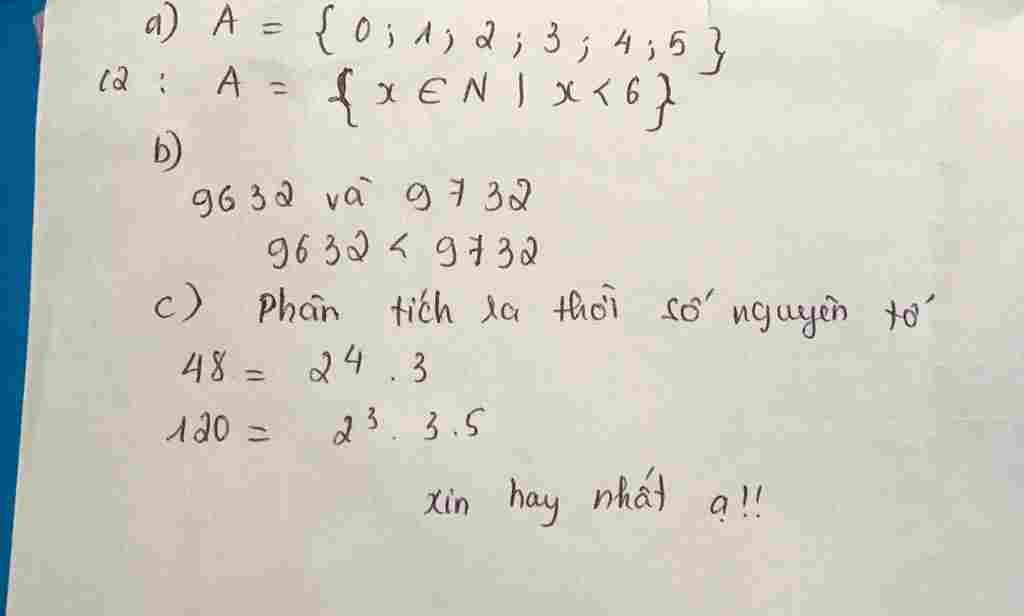 a) A = { 0 ; 1 ; 2 ; 3 ; 4 ; 5 }
C2 : A = { x ∈ N | x < 6 }
b)
9632 và 9732
9632 < 9732
c) Phân tích ra thời số nguyên tố
48 = 2⁴ . 3
120 = 2³ . 3 . 5
xin hay nhất ạ!!